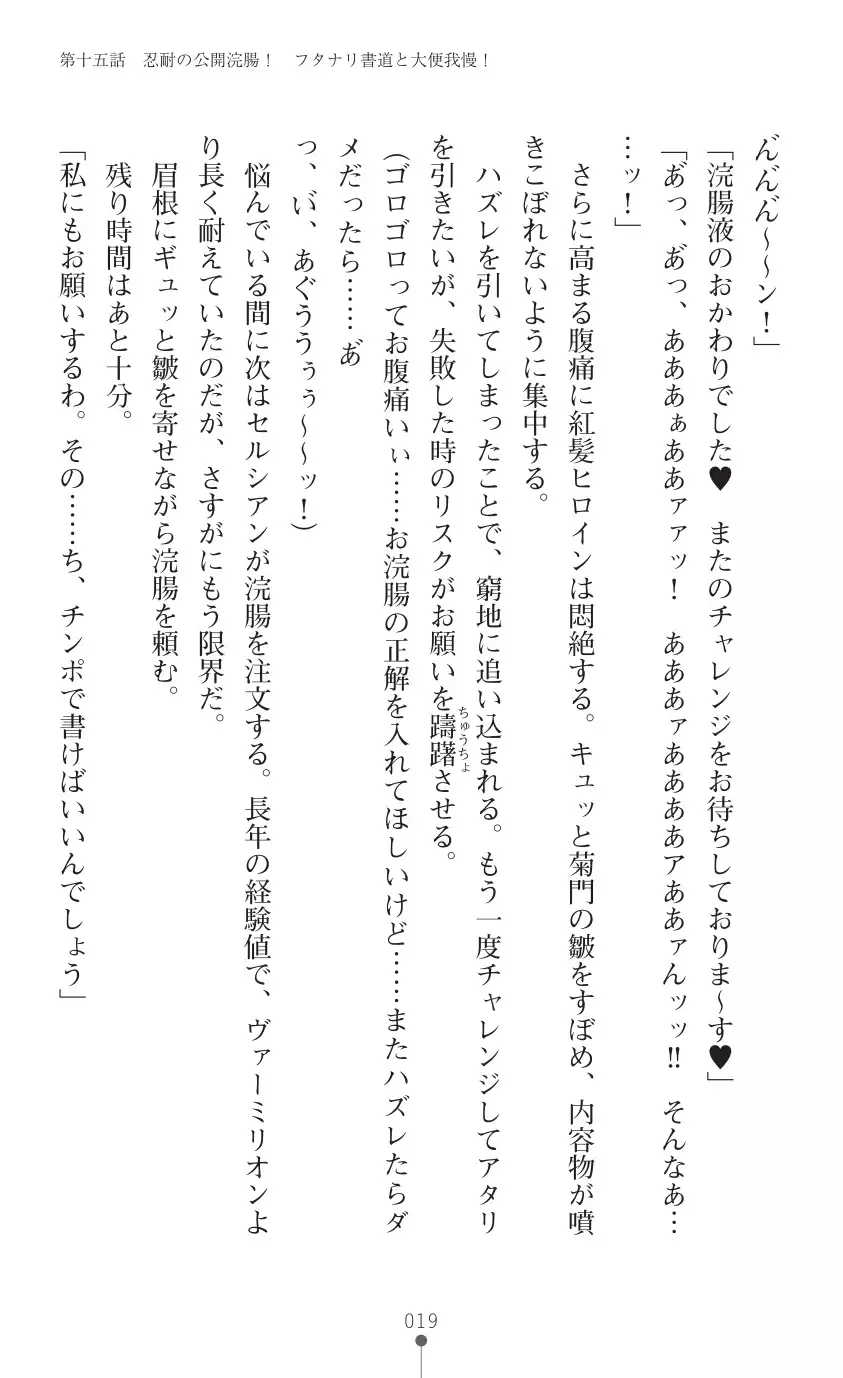 第十五話　忍耐の公開浣腸！　フタナリ書道と大便我慢！
ん゛ん゛ん゛～～ン！」
「浣腸液のおかわりでした♥　またのチャレンジをお待ちしておりま～す♥」
「あ゛っ、あ゛っ、あああぁああァァッ！　あああァああああアああァんッッ!!　そんなぁ…
…ッ！」
　さらに高まる腹痛に紅髪ヒロインは悶絶する。キュッと菊門の皺をすぼめ、内容物が噴
きこぼれないように集中する。
　ハズレを引いてしまったことで、窮地に追い込まれる。もう一度チャレンジしてアタリ
を引きたいが、失敗した時のリスクがお願いを躊躇させる。
ちゅうちょ
（ゴロゴロってお腹痛いぃ……お浣腸の正解を入れてほしいけど……またハズレたらダ
メだったら……あ゛
っ、い゛、あぐううぅぅ～～ッ！）
　悩んでいる間に次はセルシアンが浣腸を注文する。長年の経験値で、ヴァーミリオンよ
り長く耐えていたのだが、さすがにもう限界だ。
　眉根にギュッと皺を寄せながら浣腸を頼む。
　残り時間はあと十分。
「私にもお願いするわ。その……ち、チンポで書けばいいんでしょう」
019